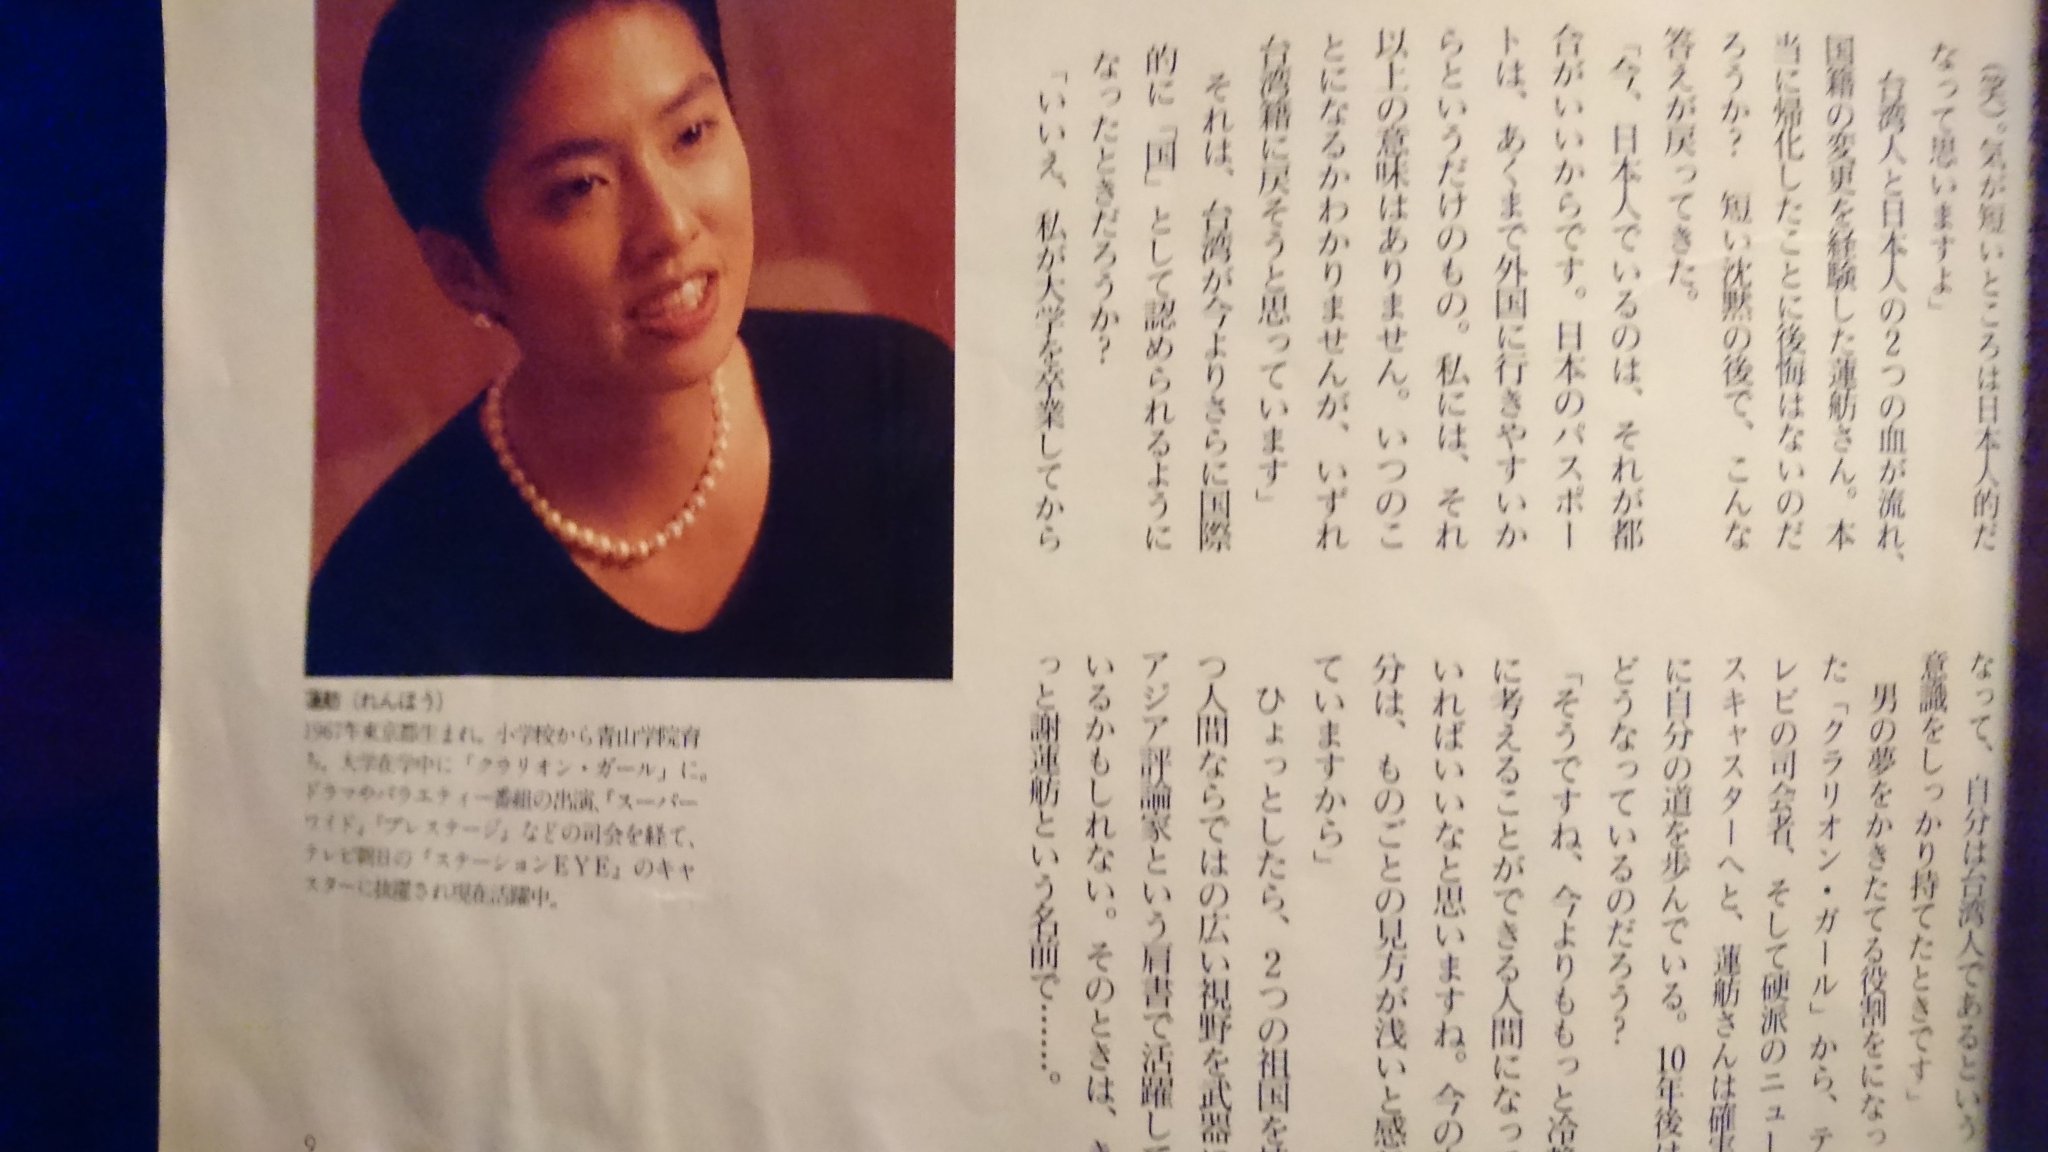 (笑)。気が短いところは日本人的だ
なって思いますよ」
台湾人と日本人の2つの血が流れ、
国籍の変更を経験した蓮舫さん。本
当に帰化したことに後悔はないのだ
ろうか？ 短い沈黙の後で、こんな
答えが戻ってきた。
「今、日本人でいるのは、それが都
合がいいからです。日本のパスポー
トは、あくまで外国に行きやすいか
らというだけのもの。私には、それ
以上の意味はありません。いつのこ
とになるかわかりませんが、いずれ
台湾籍に戻そうと思っています」
それは、台湾が今よりさらに国際
的に「国」として認められるように
なったときだろうか？
「いいえ、私が大学を卒業してから
なって、自分は台湾人であるという
意識をしっかり持てたときです」
男の夢をかきたてる役割をになっ
た「クラリオン・ガール」から、テ
レビの司会者、そして硬派のニュー
スキャスターへと、蓮舫さんは確実
に自分の道を歩んでいる。10年後は
どうなっているのだろう？
「そうですね、今よりももっと冷静
に考えることができる人間になって
いればいいなと思いますね。今の
分は、ものごとの見方が浅いと感
ていますから」
ひょっとしたら、2つの祖国を
つ人間ならではの広い視野を武器に
アジア評論家という肩書で活躍して
いるかもしれない。そのときは、き
っと謝蓮舫という名前で……。
蓮舫（れんほう）
1967年東京都生まれ。小学校から青山学院育
ち。大学在学中に「クラリオン・ガール」に。
ドラマやバラエティー番組の出演、『スーパー
ワイド』『プレステージ』などの司会を経て、
テレビ朝日の『ステーションEYE』のキャ
スターに抜擢され現在活躍中。
9